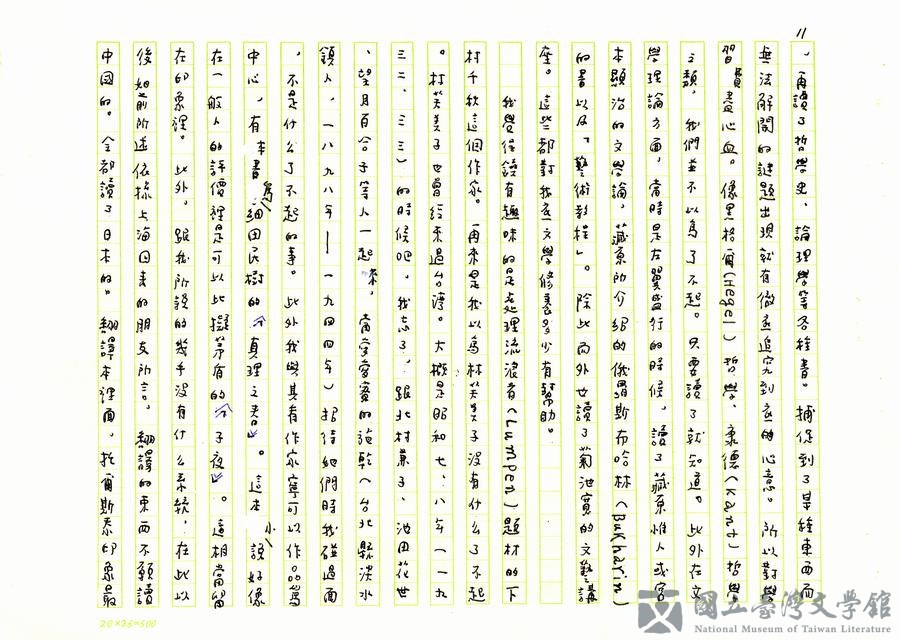 11
、再讀了哲學史、論理學等各種書。捕促到了某種東西而
無法解開的謎題出現就有徹底追究到底的心意。所以對學
習費盡心血。像黑格爾(Hegel)哲學、康德(Kant)哲學
之類,我們並不以為了不起。只要讀了就知道。此外在文
學理論方面,當時是左翼盛行的時候,讀了藏原惟人或宮
本顯治的文學論,藏原所介紹的俄羅斯布哈林(Bukharin)
的書以及「藝術教程」。除此而外也讀了菊池寬的文藝講
座。這些都對我底文學修養多少有幫助。
我覺得饒有趣味的是處理流浪者(Lumpen)題材的下
村千秋這個作家。再來是我以為村芙美子沒有什么了不起
。村芙美子也曾經來過台灣。大概是昭和七、八年(一九
三二、三三)的時候吧。我忘了,跟北村兼子、池田花世
、望月百合子等人一起來,當
鎮人,一八九八年——一九四四年)招待她們時我碰過面
,不是什么了不起的事。此外我與其有作家寧可以作品為
中心,有本書為細田民樹的『真理之春』。這本小說好像
在一般人的評價裡是可以比擬茅盾的『子夜』。這相當留
在印象裡。此外。跟我所談的幾乎沒有什么系統,在此以
後如前所述依據上海回來的朋友所言,翻譯的東西不願讀
中國的。全部讀了日本的。翻譯本裡面,托爾斯泰印象最
20×25=500
國立臺灣文學館
National Museum of Taiwan Literature